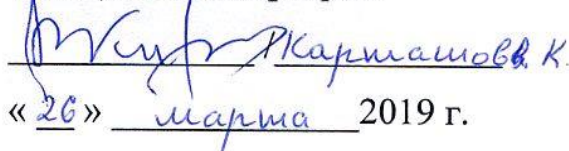 Карташова К.
« 26 » марта 2019 г.